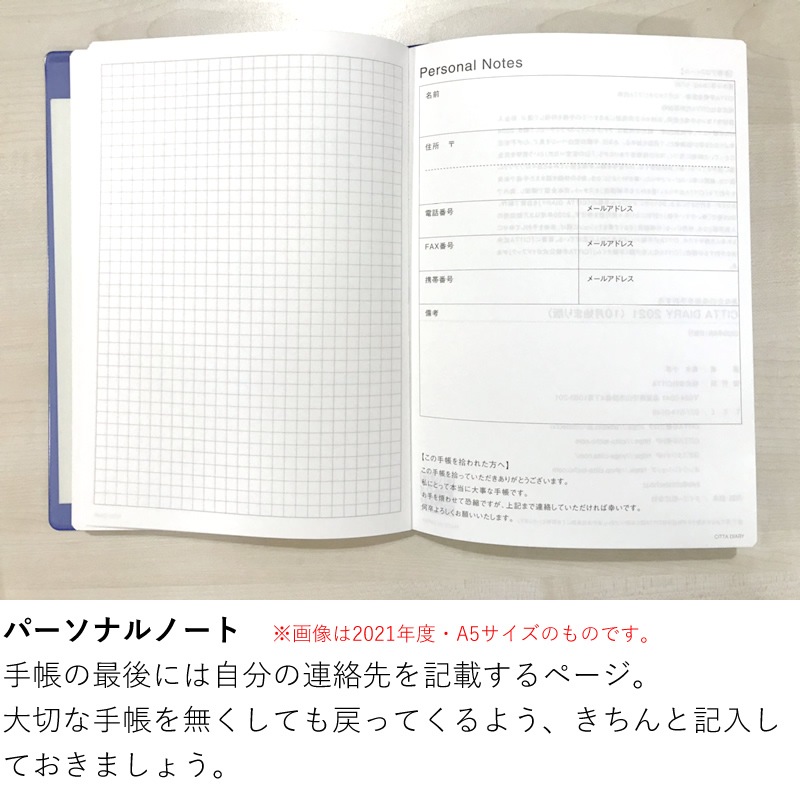 Personal Notes
名前
住所　〒
電話番号　メールアドレス
FAX番号　メールアドレス
携帯番号　メールアドレス
備考
【この手帳を拾われた方へ】
この手帳を拾っていただきありがとうございます。
私にとって本当に大事な手帳です。
お手を煩わせて恐縮ですが、上記まで連絡していただければ幸いです。
何卒よろしくお願いいたします。
CITTA DIARY
パーソナルノート　※画像は2021年度・A5サイズのものです。
手帳の最後には自分の連絡先を記載するページ。
大切な手帳を無くしても戻ってくるよう、きちんと記入し
ておきましょう。